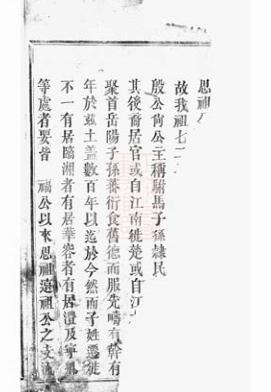 思祖
故我祖七二
殷公尙公主稱駙馬子孫隸民
其後裔居官或自江南徙楚或自江
聚首岳陽子孫蕃衍食舊德而服先疇有幹有
年於兹土盖數百年以迄於今然而子姓遷徙
不一有居臨湘者有居華容者有居澧及寧
等處者要皆 福公以來思祖遠祖公之支